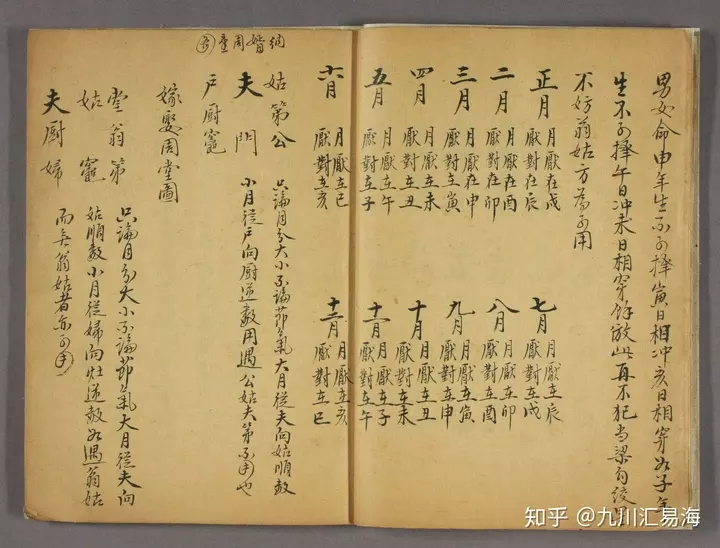 男女命申年生不可擇寅日相冲亥日相穿如子年
生不可擇午日冲未日相穿餘倣此再不犯当梁勾絞
不妨翁姑方為可用
正月
月厭在戌
厭對在辰
二月
月厭在酉
厭對在卯
三月
月厭在申
厭對在寅
四月
月厭在未
厭對在丑
五月
月厭在午
厭對在子
六月
月厭在巳
厭對在亥
七月
月厭在辰
厭對在戌
八月
月厭在卯
厭對在酉
九月
月厭在寅
厭對在申
十月
月厭在丑
厭對在未
十一月
月厭在子
厭對在午
十二月
月厭在亥
厭對在巳
納婿周堂
姑第公
夫 門
戶厨竈
只論月分大小不論節氣大月從夫向姑順数
小月從戶向厨逆数用遇公姑夫第不用也
嫁娶周堂圖
堂翁第
姑 竈
夫厨婦
只論月分大小不論節氣大月從夫向
姑順数小月從婦向灶逆数如遇翁姑
而無翁姑者亦可用
知乎 @九川汇易海